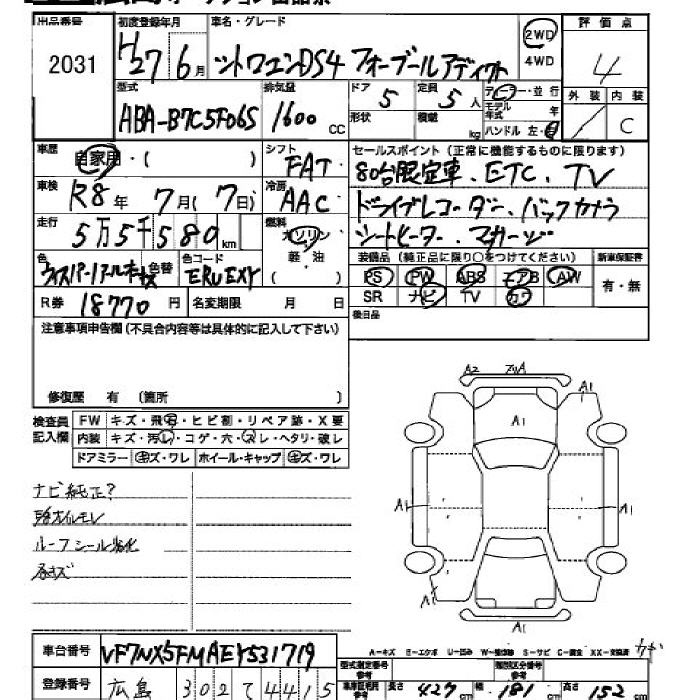 出品番号 初度登録年月 車名・グレード 評価点
2031 H27年6月 シトロエンDS4 フォーブールアディクト 2WD 4WD 4
型式 排気量 ドア 定員 ディーラー・並行 外装 内装
ABA-B7C5F06S 1600cc 5 5人 モデル年式 年 C
形状 積載 kg ハンドル 左・右
車歴 自家用・( ) シフト FAT セールスポイント(正常に機能するものに限ります)
車検 R8年 7月(7日) 冷房 AAC 80台限定車、ETC、TV
走行 5万5千580km 燃料 ガソリン 軽・油 ( ドライブレコーダー、バックカメラ
シートヒーター、マッサージ
色 色替 色コード ERUEXY 装備品(純正品に限り○をつけてください) 新車保証書
PS PW ABS エアB AW 有・無
R券 18770円 名変期限 月 日 SR ナビ TV カワ
注意事項申告欄(不具合内容等は具体的に記入して下さい) 後日品
修復歴 有 (箇所 )
検査員記入欄 FW キズ・飛石・ヒビ割・リペア跡・X要
内装 キズ・汚レ・コゲ・穴・スレ・ヘタリ・破レ
ドアミラー キズ・ワレ ホイール・キャップ キズ・ワレ
A2 A1
A1
A1 A1
A1
A1
ナビ純正?
ルーフシール劣化
A-キズ E-エクボ U-凹み W-補修跡 S-サビ C-腐食 XX-交換済
車台番号 VF7NX5FMAEY531719 型式指定番号 類別区分番号
登録番号 広島 302 て 4415 長さ 427cm 幅 181cm 高さ 152cm